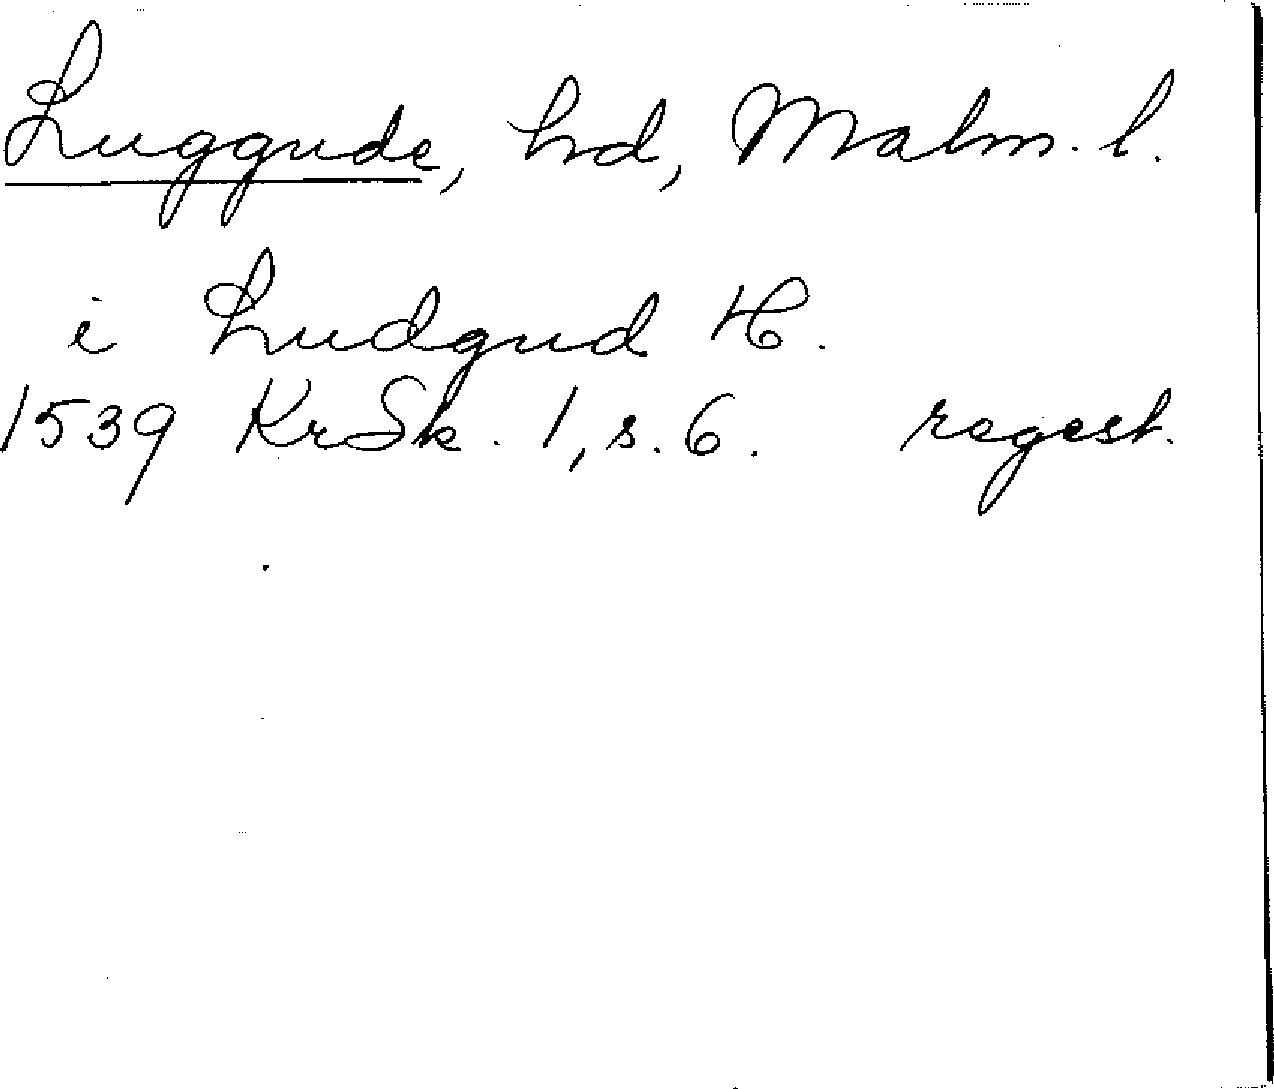 Luggude, hd, Malm. l.
i Ludgud H.
1539 KrSk. 1, s. 6. regest.